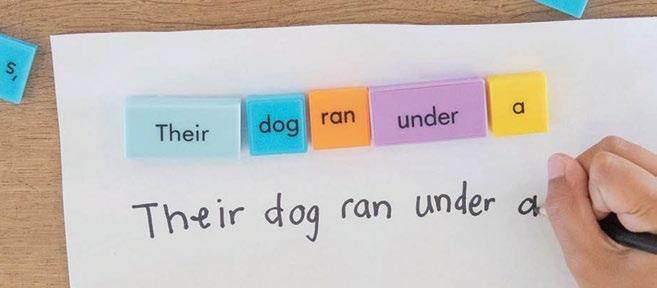 s,
Their dog ran under a
Their dog ran under a